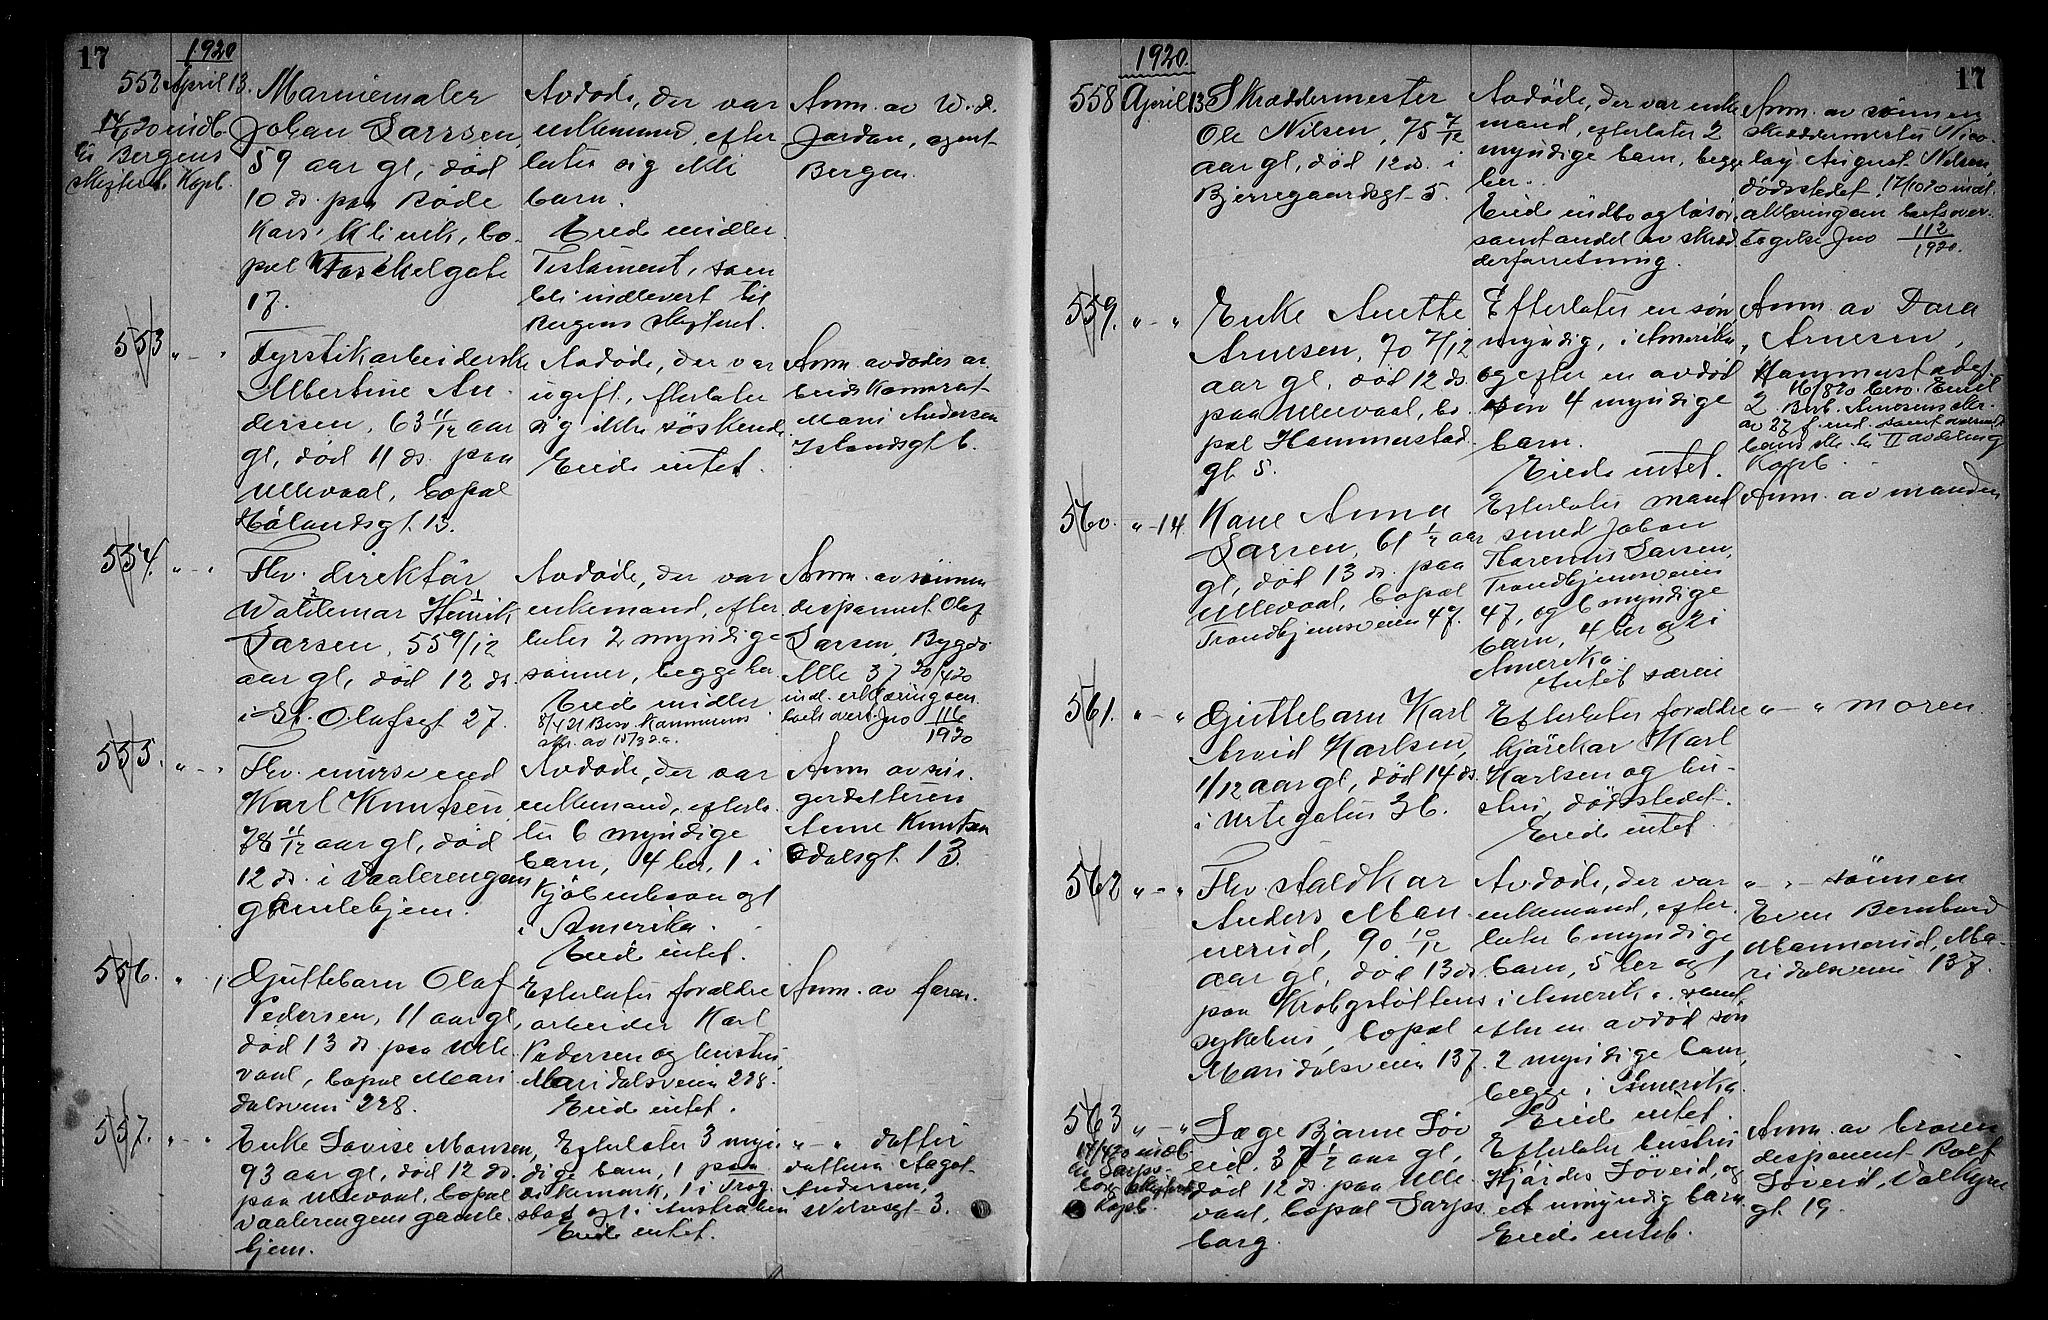 17
1920
552 April 13.
14/4 20 indb.
til Bergens
skifteret. Kopb.
Marinemaler
Johan Larssen,
59 aar gl, död
10 ds. paa Röde
Kors' Klinik, bo-
pæl
17.
Avdöde, der var
enkemand, efter
later sig ikke
barn.
Eiede midler.
Testament, som
bli indlevert til
Bergens skifteret.
Anm. av W. d.
Jordan, agent
Bergen.
553 " - "
Fyrstikarbeiderske
Albertine An-
dersen, 63 11/12 aar
gl, död 11 ds. paa
Ullevaal, bopæl
Hölandsgt. 13.
Avdöde, der var
ugift, efterlater
sig ikke söskende.
Eiede intet.
Anm. avdödes ar
beidskamerat
Marie Andersen
Islandsgt 6.
554. " - "
Fhv. direktör
Waldemar Henrik
Larsen, 55 9/12
aar gl, död 12 ds.
i St. Olafsgt 27.
Avdöde, der var
enkemand, efter
later 2 myndige
sönner, begge her.
Eiede midler
8/4 21 Besv. Kammerets
skr. av 15/3 d.a.
Anm. av sönnen
disponent Olaf
Larsen, Bygdö
Alle 37 20/4 20
indl. erklæring om
boets overt. Jno 116
1920
555. " - "
Fhv. murersvend
Karl Knutsen
78 11/12 aar gl, död
12 ds. i Vaalerengens
gamlehjem.
Avdöde, der var
enkemand, efterla-
ter 6 myndige
barn, 4 her, 1 i
Kjöbenhavn og 1
i Amerika.
Eiede intet.
Anm. av svi-
gerdatteren
Anne Knutsen
Odalsgt. 13.
556. " "
Guttebarn Olaf
Pedersen, 11 aar gl,
död 13 ds. paa Ulle
vaal, bopæl Mari
dalsveien 228.
Efterlater forældre
arbeider Karl
Pedersen og hustru,
Maridalsveien 228.
Eiede intet.
Anm. av faren.
557. " - "
Enke Lovise Monsen,
93 aar gl, död 12 ds.
paa Ullevaal, bopæl
Vaalerengens gamle-
hjem.
Efterlater 3 myn
dige barn, 1 paa
Dikemark, 1 i Trøg-
stad og 1 i Australien
Eiede intet.
" - " datter
datteren Aagot
Andersen,
Nilsesgt 3.
17
1920.
558 April 13
Skræddermester
Ole Nilsen, 75 7/12
aar gl, död 12 ds. i
Bjerregaardsgt 5.
Avdöde, der var enke
mand, efterlater 2
myndige barn, begge
her.
Eiede indbo og lösöre
samt andel av skræd
derforretning.
Anm. av sönnen
skræddermester Nico-
lay August Nilsen,
dödsstedet. 17/10 20 indl.
erklæring om boets over-
tagelse Jno 112
1920.
559. " - "
Enke Anette
Arnesen, 70 7/12
aar gl, död 12 ds.
paa Ullevaal, bo-
pæl Hammerstad
gt. 5.
Efterlater en sön
myndig, i Amerika,
og efter en avdöd
sön 4 myndige
barn.
Eiede intet.
Anm. av Dora
Arnesen,
Hammerstadgt.
16/8 20 besv. Emil
2. Arnesens skr.
av 27 f. md. samt oversendt
II avdeling
Kopb.
560. " - 14.
Kone Anna
Larsen, 61 1/2 aar
gl, död 13 ds. paa
Ullevaal, bopæl
Trondhjemsveien 47.
Efterlater mand
smed Johan
Larsen,
Trondhjemsveien
47, og 6 myndige
barn, 4 her og 2 i
Amerika.
Intet særeie
Anm. av manden
561. " - "
Guttebarn Karl
Arvid Karlsen,
1/12 aar gl, död 14 ds.
i Urtegaten 36.
Efterlater forældre
kjörekar Karl
Karlsen og hu-
stru, dödsstedet.
Eiede intet.
" - " moren.
562 " - "
Fhv staldkar
Anders Man
nerud, 90 10/12
aar gl, död 13 ds.
paa Krohgstöttens
sykehus, bopæl
Maridalsveien 137.
Avdöde, der var
enkemand, efter-
later 6 myndige
barn, 5 her og 1
i Amerika, samt
efter en avdöd sön
2 myndige barn,
begge i Amerika.
Eiede intet.
" - " sönnen
Even Bernhard
Mannerud, Ma-
ridalsveien 137.
563 " - "
17/4 20 indb.
til Sarps-
borg skifteret
Kopb.
Læge Bjarne Löv
eid, 37 1/2 aar gl,
död 12 ds. paa Ulle
vaal, bopæl Sarps
borg.
Efterlater hustru
Hjördis Löveid, og
et umyndig barn.
Eiede intet.
Anm. av broren
disponent Rolf
Löveid, Valkyrie
gt. 19.